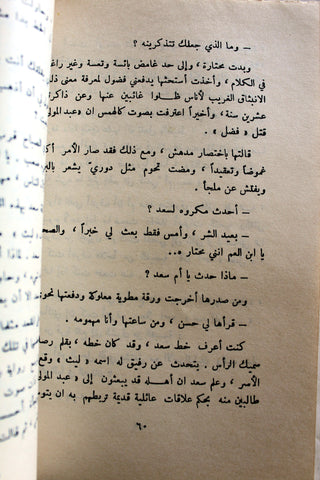 — وما الذي جعلك تتذكرينه ؟
وبدت محتارة ، وإلى حد غامض بائسة وتعسة وغير راغ
في الكلام ، وأخذت أستحثها يدفعني فضول لمعرفة معنى ذلك
الانبثاق الغريب لأناس ظلوا غائبين عنها وعن ذاكرة
عشرين سنة ، وأخيراً اعترفت بصوت كالهمس ان «عبد المولى
قتل « فضل » .
قالتها باختصار مدهش ، ومع ذلك فقد صار الأمر أكـ
غموضاً وتعقيداً ، ومضت تحوم مثل دوريّ يشعر بالبر
ويفتش عن ملجأ .
— أحدث مكروه لسعد ؟
— بعيد الشر ، وأمس فقط بعث لي خبراً ، والصحـ
يا ابن العم انني محتار » ..
— ماذا حدث يا أم سعد ؟
ومن صدرها أخرجت ورقة مطوية معلوكة ودفعتها نحو
— قرأها لي حسن ، ومن ساعتها وأنا مهمومه .
كنت أعرف خط سعد ، وقد كان خطه ، بقلم رصا
سميك الرأس . يتحدث عن رفيق له اسمه « ليث » وقع
الأسر ، وعلم سعد ان أهـله قد يبعثون إلى «عبد المولى
طالبين منه بحكم علاقات عائلية قديمة تربطهم به ان يتو
٦٠